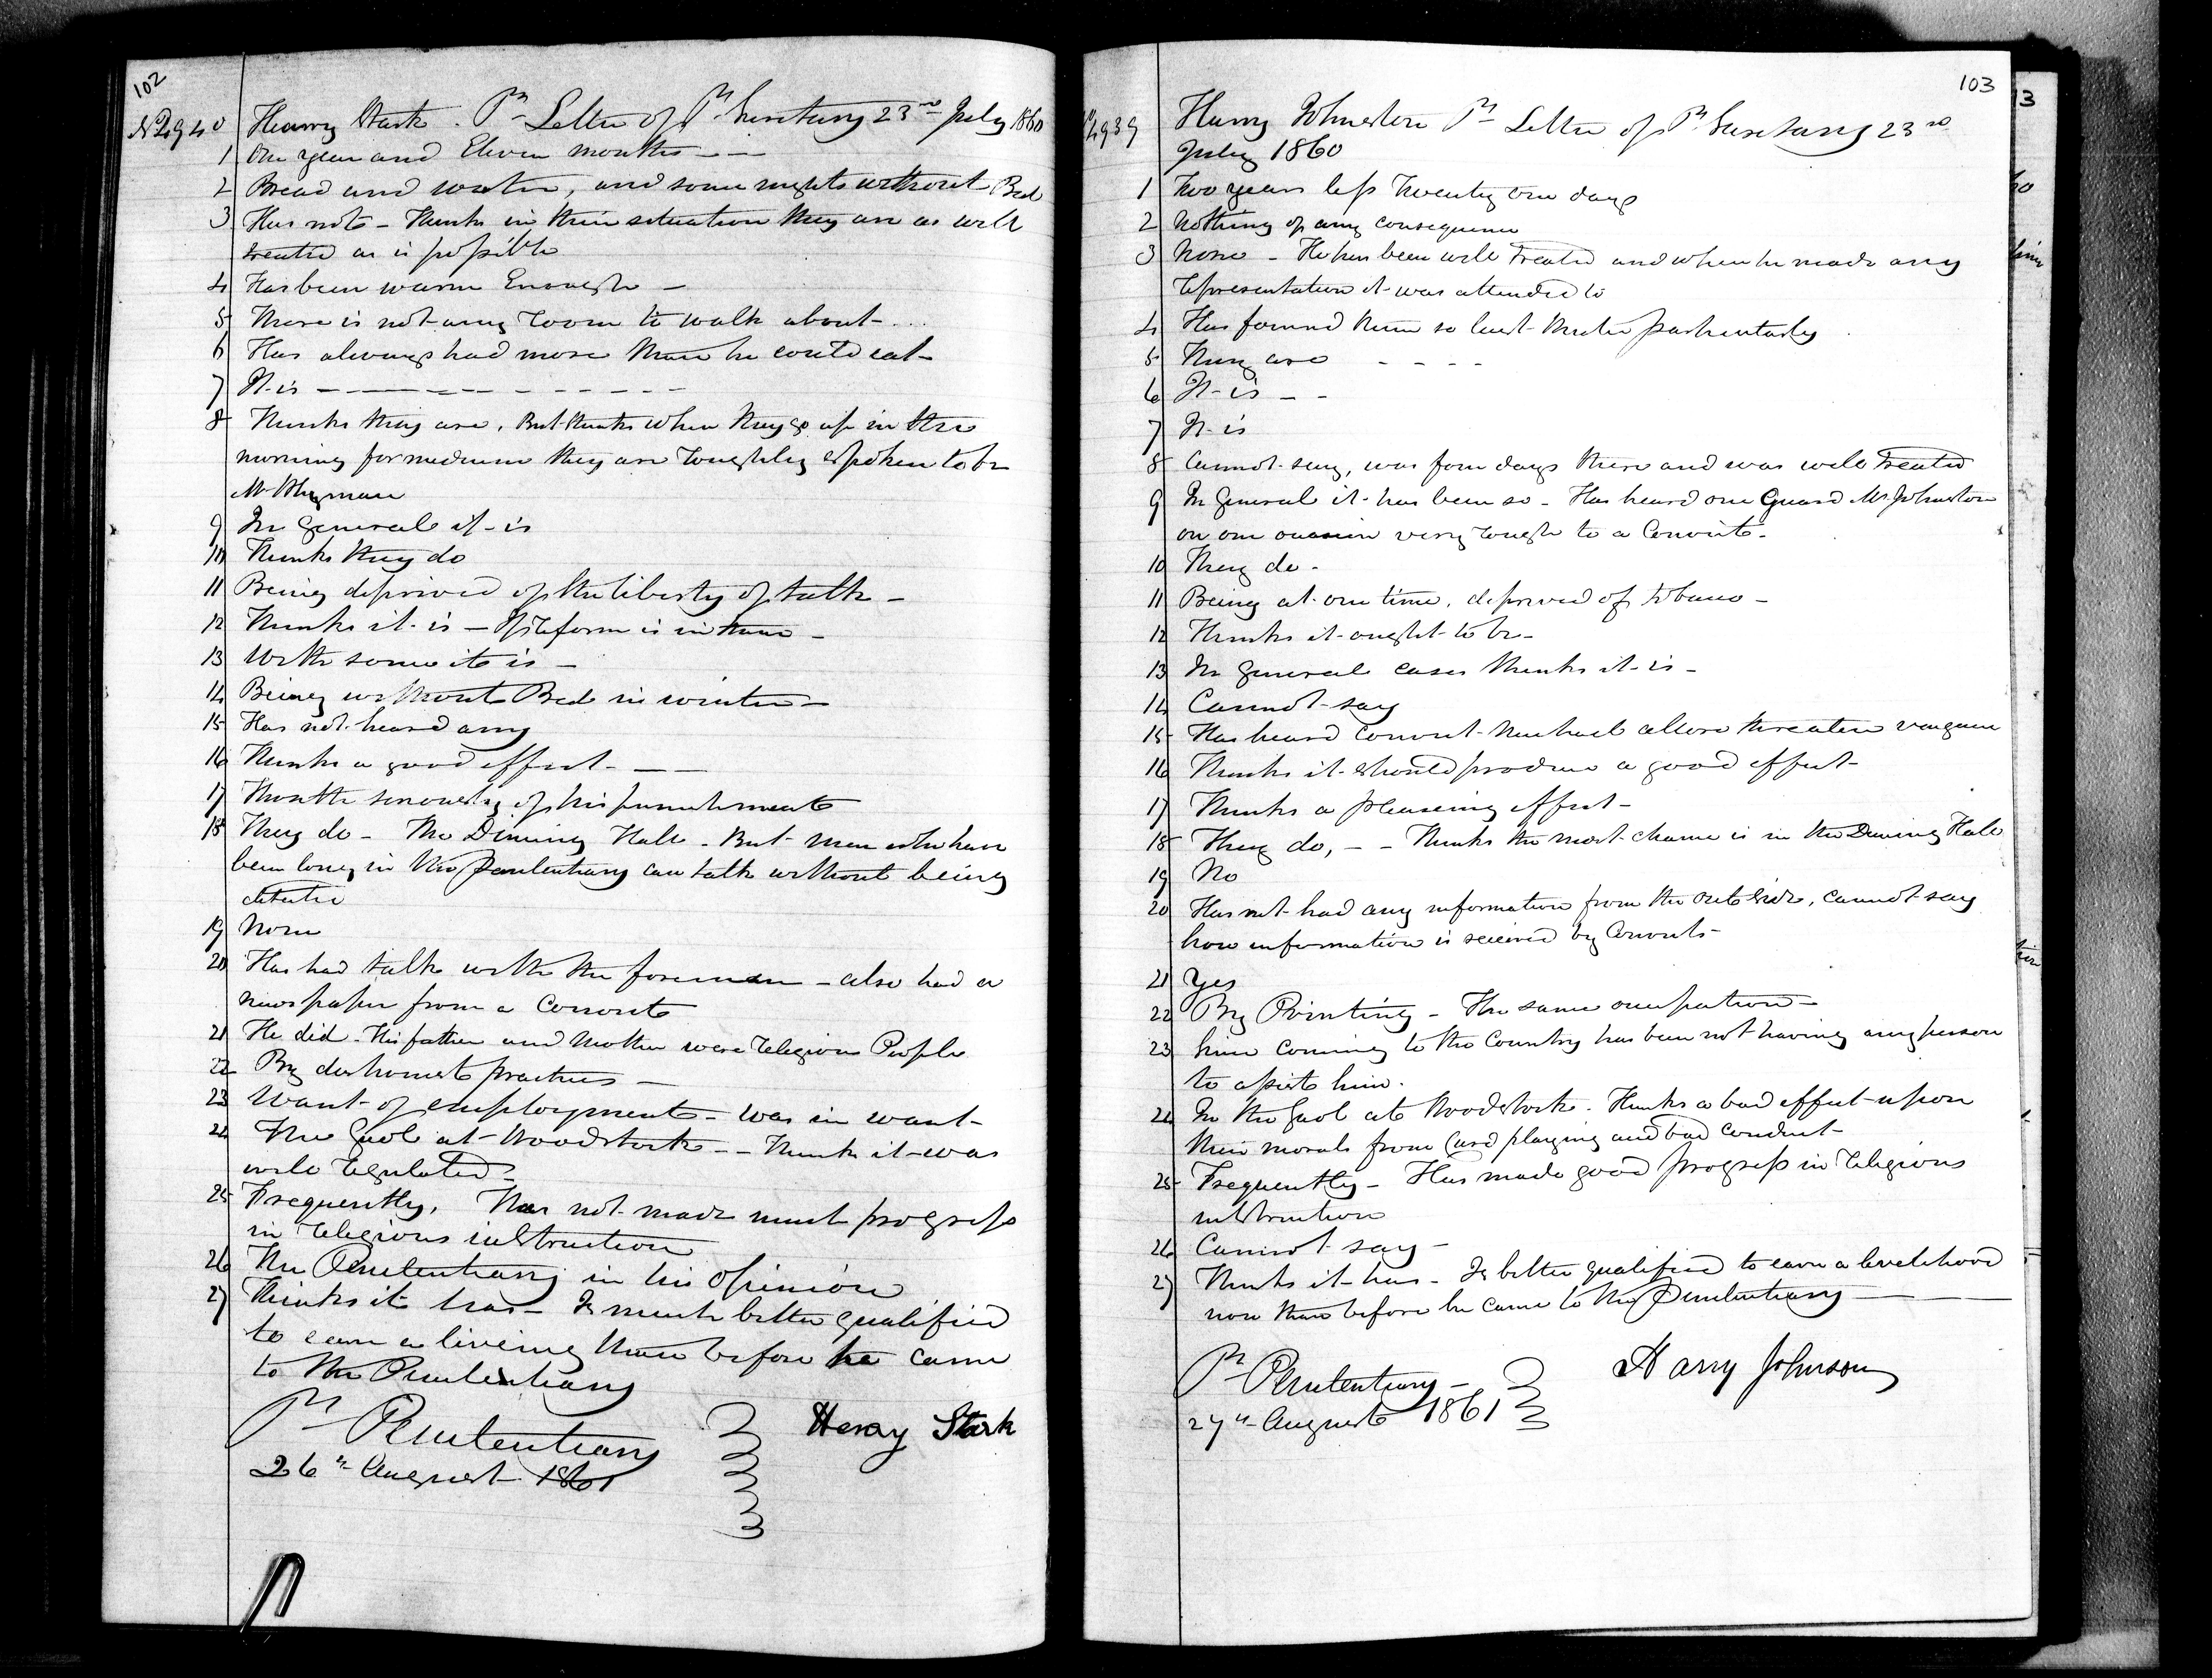 102
No 4940 Henry Stark. Pr Letter of P. Secretary 23rd July 1860
1 One year and Eleven months - -
2 Bread and water, and some nights without Bed
3 Has not - Thinks in their situation they are as well
treated as is possible
4 Has been warm Enough -
5 There is not any room to walk about - ...
6 Has always had more than he could eat -
7 It is - - - - - - - - -
8 Thinks they are. But thinks when they go up in the
morning for medicine they are roughly spoken to by
Mr
9 In general it is
10 Thinks they do
11 Being deprived of the liberty of talk -
12 Thinks it is - If reform is in them -
13 With some it is -
14 Being without Bed in winter -
15 Has not heard any
16 Thinks a good effect - -
17 The severity of his punishments
18 They do - The Dinning Hall - But men who have
been long in the Penitentiary can talk without being
19 None
20 Has had talk with the foreman - also had a
newspaper from a Convict
21 He did - His father and Mother were religious People
22 By dishonest practices -
23 Want of employment - was in want -
24 The Gaol at Woodstock - - Thinks it was
well regulated -
25 Frequently, Has not made much progress
in religious instruction
26 The Penitentiary in his Opinion
27 Thinks it has - Is much better qualified
to earn a liveing than before he came
to the Penitentiary
Pl Penitentiary
26th August 1861
Henry Stark
103
4939 Harry Johnston Pr Letter of P. Secretary 23rd
July 1860
1 Two years less Twenty one days
2 Nothing of any consequence
3 None - He has been well Treated and when he made any
representation it was attended to
4 Has found them so last Winter particularly
5 They are - - - -
6 It is - -
7 It is
8 Cannot say, was four days there and was well Treated
9 In General it has been so - Has heard one Guard Mr Johnston
on one occasion very rough to a Convict -
10 They do -
11 Being at one time, deprived of Tobacco -
12 Thinks it ought to be -
13 In General cases thinks it is -
14 Cannot say
15 Has heard convict Michael threaten vengence
16 Thinks it should produce a good effect -
17 Thinks a pleaseing effect -
18 They do, - - Thinks the most chance is in the Dinning Hall
19 No
20 Has not had any information from the outside, cannot say
how information is received by Convicts -
21 Yes
22 By Printing - The same occupation -
23 Since Coming to the Country has been not having any person
to assist him.
24 In the Gaol at Woodstock. Thinks a bad effect upon
their morals from Card playing and bad conduct -
25 Frequently - Has made good progress in religious
instruction
26 Cannot say -
27 Thinks it has - Is better qualified to earn a livelihood
now than before he came to the Penitentiary -
Pl Penitentiary -
27th August 1861
Harry Johnson